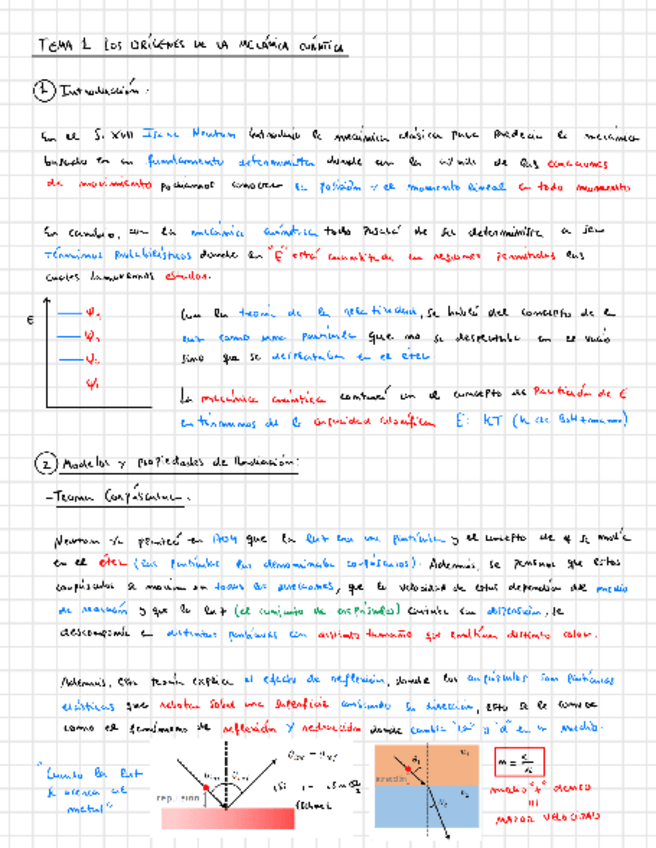 TEMA 1 LOS ORÍGENES DE LA MECÁNICA CUÁNTICA
1 Introducción:
En el S. XVII Isaac Newton introdujo la mecánica clásica para predecir la mecánica
basado en un fundamento determinista donde con la de las ecuaciones
de movimiento podíamos conocer la posición y el momento lineal en todo momento
En cambio, con la mecánica cuántica todo pasará de ser determinista a ser
términos probabilísticos donde la "E" está cuantizada en regiones permitidas las
cuales llamaremos estados.
E
Con la teoría de la relatividad, se habló del concepto de la
luz como una partícula que no se desplazaba en el vacío
sino que se desplazaba en el éter
La mecánica cuántica comenzó con el concepto de Partición de E
en términos de la capacidad calorífica E: KT (k de Boltzmann)
2 Modelos y propiedades de Radiación:
- Teoría Corpuscular.
Newton ya planteó en 1704 que la luz era una partícula y el concepto de se movía
en el éter (las partículas las denominaba corpúsculos). Además, se pensaba que estos
corpúsculos se movían en todas las direcciones, que la velocidad de estas dependían del medio
de reacción y que la luz (el conjunto de corpúsculos) durante su dispersión, se
descomponía en distintas partículas con distinto tamaño que emitían distinto color.
Además, esta teoría explica el efecto de reflexión, donde los corpúsculos son partículas
elásticas que rebotan sobre una superficie cambiando su dirección, esto se le conoce
como el fenómeno de reflexión y refracción donde cambia en un medio.
"Cuando la luz
se acerca al
metal"
repulsión
n = c/v
medio "+" denso
MAYOR VELOCIDAD